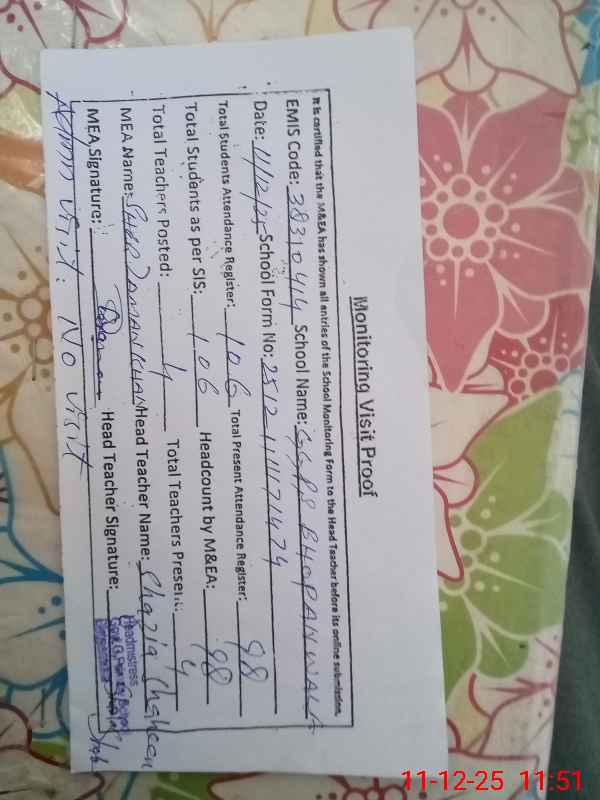 Monitoring Visit Proof
It is certified that the M&EA has shown all entries of the School Monitoring Form to the Head Teacher before its online submission.
EMIS Code: 38310414 School Name: GGPS BHOPANWALA
Date: 11/12/25 School Form No: 2512111171474
Total Students Attendance Register: 106 Total Present Attendance Register: 98
Total Students as per SIS: 106 Headcount by M&EA: 98
Total Teachers Posted: 4 Total Teachers Present: 4
MEA Name: SHER ZAMAN KHAN Head Teacher Name: Shazia Shaheen
MEA Signature: Head Teacher Signature:
Headmistress
Admn visit: No visit
11-12-25 11:51